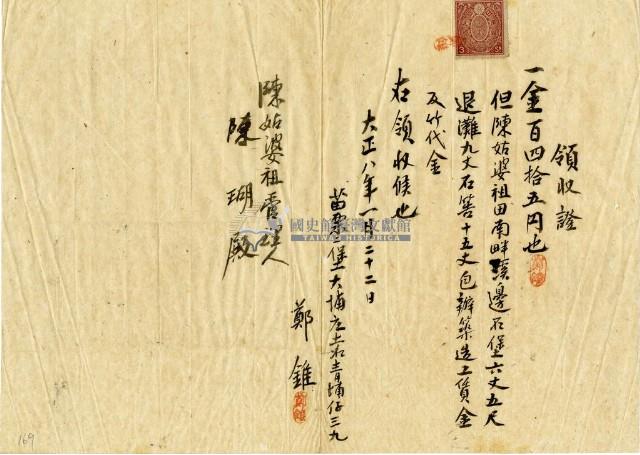 領收證
一金百四拾五円也
但陳姑婆祖田南畔溪邊石堡六丈五尺
退灘九丈石笿十五丈包辦築造工賃金
及竹代金
右領收候也
大正八年一月二十二日
苗栗一堡大埔庄土名青埔仔三九
鄭錐
陳姑婆祖管理人
陳瑚殿
國史館臺灣文獻館
TAIWAN HISTORICA
169